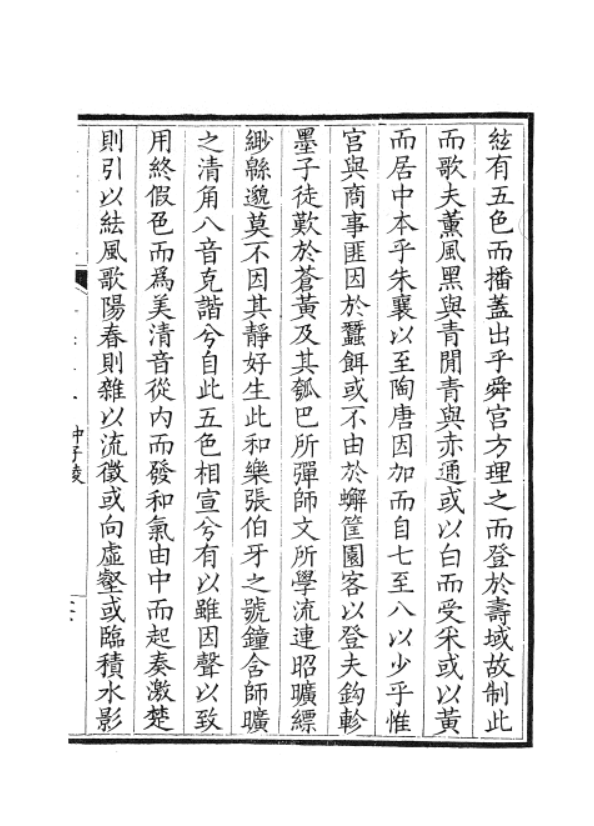 絃有五色而播蓋出乎舜宫方理之而登於壽域故制此
而歌夫薰風黑與青閒青與赤通或以白而受采或以黃
而居中本乎朱襄以至陶唐因加而自七至八以少乎惟
宫與商事匪因於蠶餌或不由於蠏筐園客以登夫鈎軫
墨子徒歎於蒼黃及其瓠巴所彈師文所學流連昭曠縹
緲緜邈莫不因其靜好生此和樂張伯牙之號鐘含師曠
之清角八音克諧兮自此五色相宣兮有以雖因聲以致
用終假色而爲美清音從内而發和氣由中而起奏激楚
則引以紶風歌陽春則雜以流徵或向虛壑或臨積水影
仲子陵